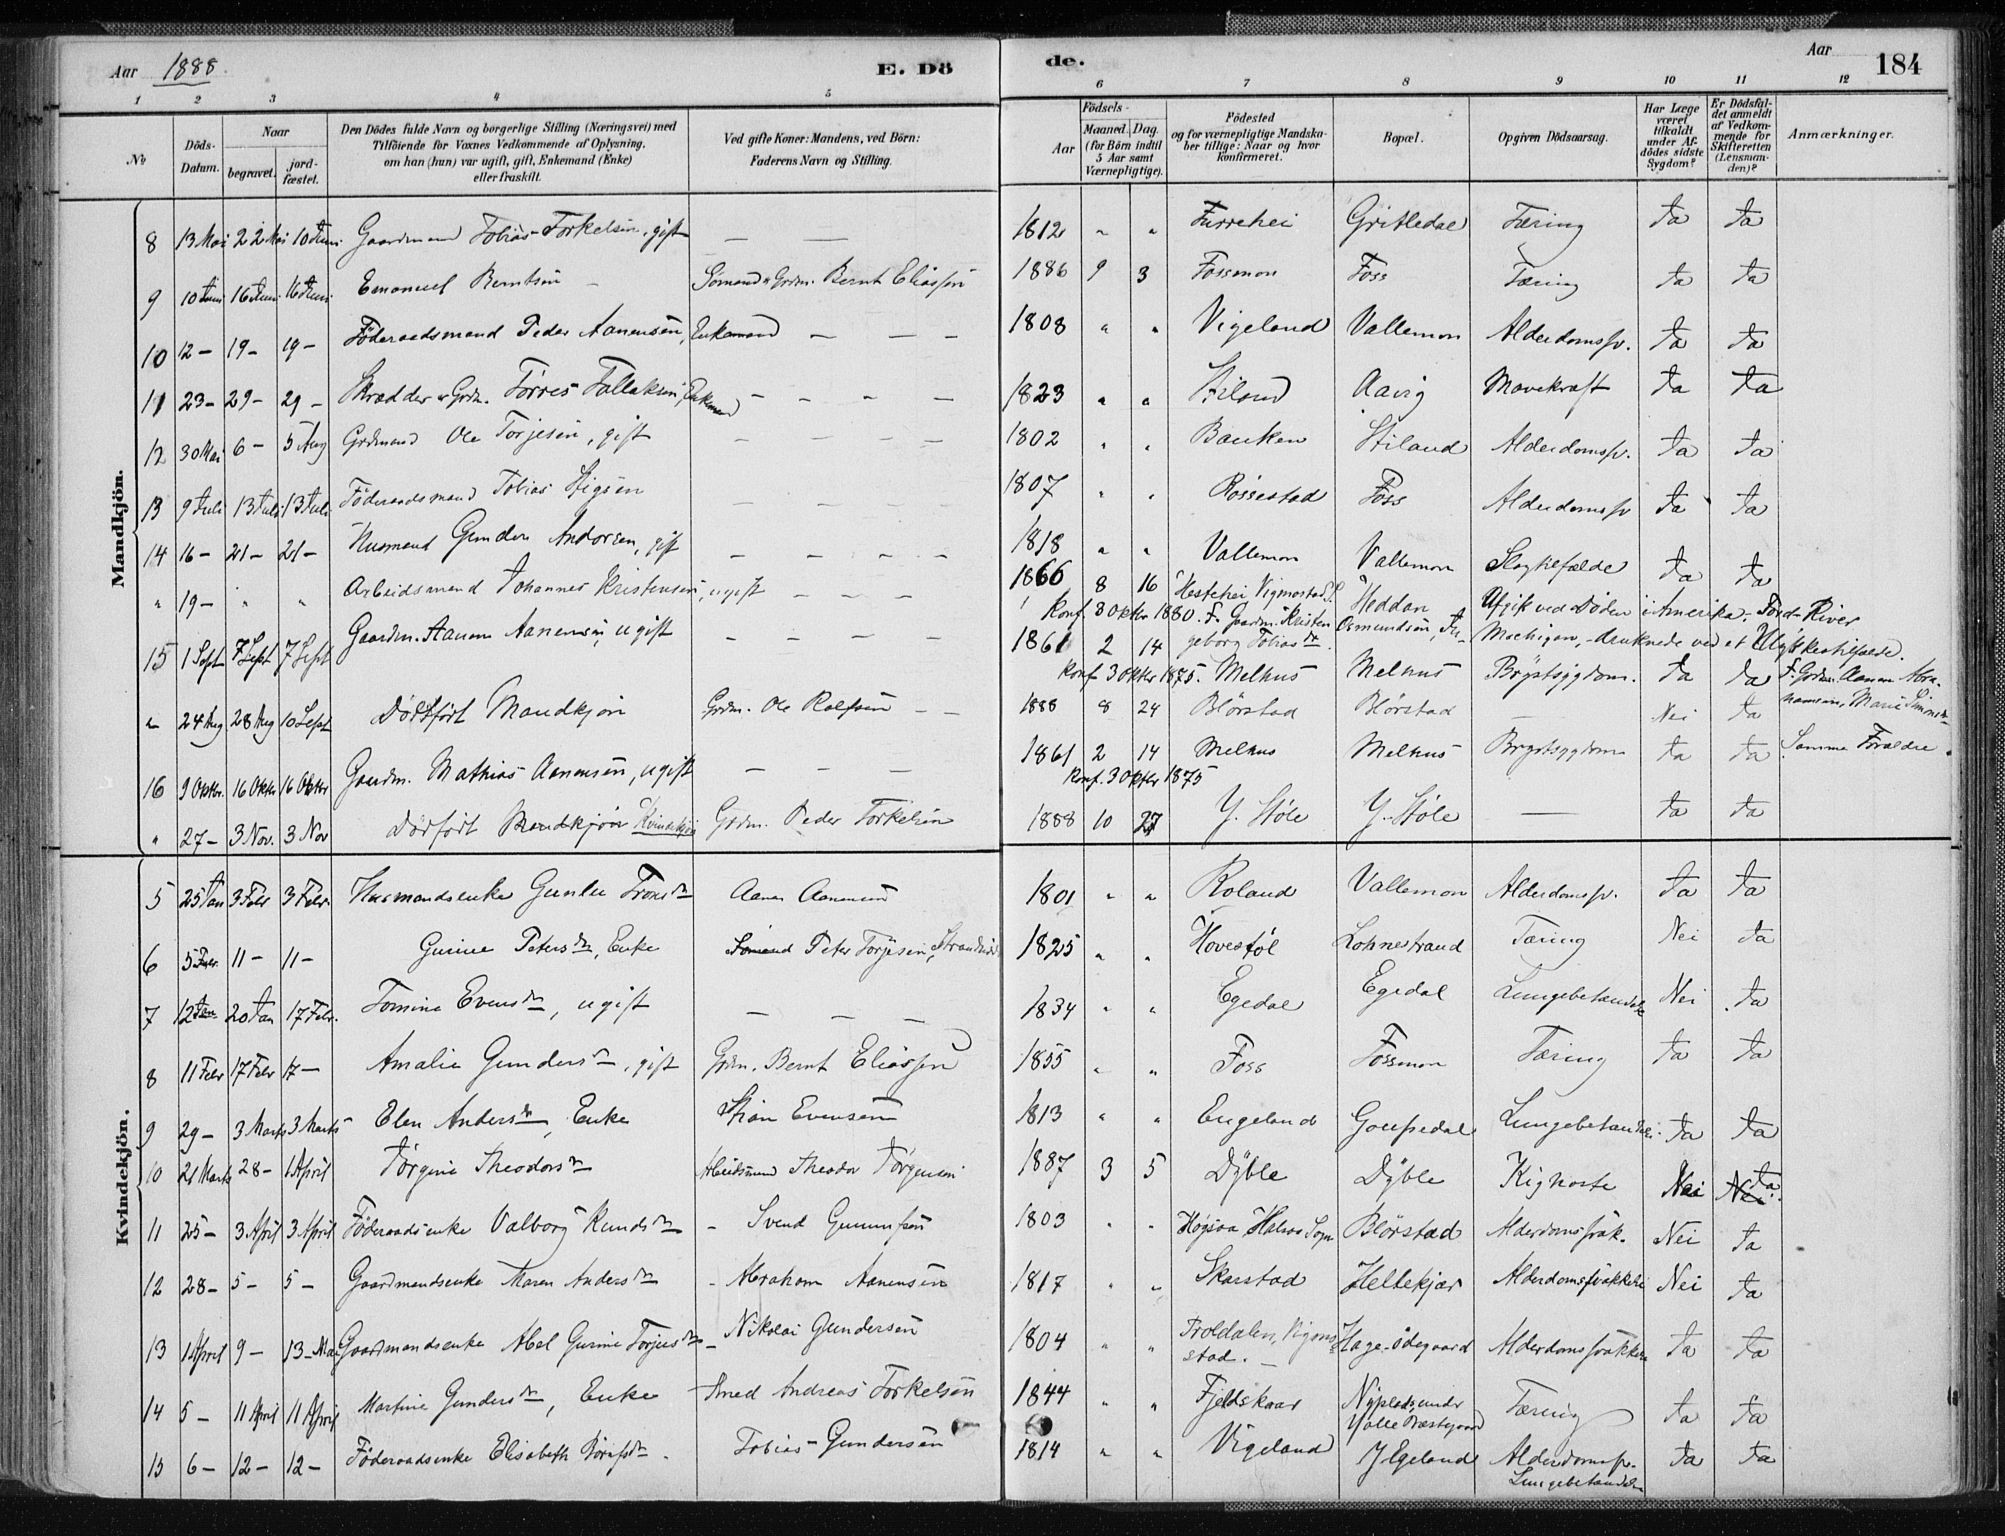 Aar 1888. E. Dö
de. Aar 184
1 2 3 4 5 6 7 8 9 10 11 12
No Döds-Datum. Naar begravet. jord-fæstet. Den Dödes fulde Navn og borgerlige Stilling (Næringsvei) med Tilföiende for Voxnes Vedkommende af Oplysning, om han (hun) var ugift, gift, Enkemand (Enke) eller fraskilt. Ved gifte Koner: Mandens, ved Börn: Faderens Navn og Stilling. Födsels- Aar Maaned. Dag. (for Börn indtil 5 Aar samt Værnepligtige). Födested og for værnepligtige Mandska-ber tillige: Naar og hvor konfirmeret. Bopæl. Opgiven Dödsaarsag. Har Læge været tilkaldt under Af-dödes sidste Sygdom? Er Dödsfal-det anmeldt af Vedkom-mende for Skifteretten (Lensman-den)? Anmærkninger.
Mandkjön.
8 13 Mai 22 Mai 10 Juni Gaardmand Tobias Torkelsen, gift — — 1812 " " Furrehei Gritledal Tæring Ja Ja
9 10 Juni 16 Juni 16 Juni Emanuel Berntsen – Sömand & Grdm. Bernt Eliassen 1886 9 3 Fossmon Foss Tæring Ja Ja
10 12 – 19 – 19 – Föderaadsmand Peder Aanensen, Enkemand — — — 1808 " " Vigeland Vallemon Alderdomssv. Ja Ja
11 23 – 29 – 29 – Skrædder & Grdm. Törres Tollaksen, Enkemand — — — — 1823 " " Stiland Aavig Mavekræft Ja Ja
12 30 Mai 6 – 5 Aug Grdmand Ole Torjesen, gift — — — — 1802 " " Banken Stiland Alderdomssv. Ja Ja
13 9 Juli 13 Juli 13 Juli Föderaadsmand Tobias Stigsen — — — — 1807 " " Rössestad Foss Alderdomssv Ja Ja
14 16 – 21 – 21 – Husmand Gunder Andersen, gift — — — — 1818 " " Vallemon Vallemon Slagtilfælde Ja Ja
" 19 – " " Arbeidsmand Johannes Kristensen, ugift — — — 1866 8 16 Hestehei Vigmostad S. Heddan Afgik ved Döden i Amerika. Ford River
Konf. 3 Oktbr 1880. F. Gaardm. Kristen Osmundsen, In-
geborg Tobiasdtr. Michigan, – druknede ved et Ulykkestilfælde.
15 1 Sept 7 Sept 7 Sept Gaardm. Aanen Aanensen, ugift — — — 1861 2 14
Konf 3 Oktbr 1875. Melhus Melhus Brystsygdom. Ja Ja F. Grdm. Aanen Abra-
hamsen, Marie Simonsdtr
" 24 Aug 28 Aug 10 Sept Dödfödt Mandkjön Grdm. Ole Rolfsen — — 1888 8 24 Blörstad Blörstad — Nei Ja
16 9 Oktbr. 16 Oktbr 16 Oktbr Gaardm. Mathias Aanensen, ugift — — — 1861 2 14 Melhus Melhus Brystsygdom Ja Ja Samme Forældre.
Konf. 3 Oktbr 1875
" 27 – 3 Nov. 3 Nov Dödfödt Mandkjön Kvindekjön Grdm. Peder Torkelsen 1888 10 27 Y. Stöle Y. Stöle — Ja Ja
Kvindekjön.
5 25 Jan 3 Febr 3 Febr. Husmandsenke Gunlu Tronsdtr Aanen Aanensen 1801 " " Roland Vallemon Alderdomssv. Ja Ja
6 5 Febr. 11 – 11 – Gurine Petersdtr, Enke Sömand Peter Torjesen, 1825 " " Hovestöl Lohnestrand Tæring Nei Ja
7 12 Jan 20 Jan 17 Febr. Tomine Evensdtr, ugift — — — 1834 " " Egedal Egedal Lungebetændelse Nei Ja
8 11 Febr 17 Febr 17 – Amalie Gundersdtr, gift Grdm. Bernt Eliassen 1855 " " Foss Fossmon Tæring Ja Ja
9 29 – 3 Marts 3 Marts Elen Andersdtr, Enke Stian Evensen 1813 " " Engeland Goupedal Lungebetændelse Ja Ja
10 21 Marts 28 – 1 April Jörgine Theodorsdtr Arbeidsmand Theodor Jörgensen 1887 3 5 Dyble Dyble Kighoste Nei Nei Ja.
11 25 – 3 April 3 April Föderaadsenke Valborg Knudsdtr – Svend Gunnufsen 1803 " " Högsaa Halsaa Sogn Blörstad Alderdomssvak. Nei Ja
12 28 – 5 – 5 – Gaardmandsenke Maren Andersdtr – Abraham Aanensen 1817 " " Skarstad Hellekjær Alderdomssvækkelse Nei Ja
13 1 April 9 – 13 – Mai Gaardmandsenke Abel Gurine Torjusdtr – Nikolai Gundersen 1804 " " Troldalen, Vigmo-
stad. – Hage-ödegaard Alderdomssvækkelse Ja Ja
14 5 – 11 April 11 April Martine Gundersdtr, Enke – Smed Andreas Torkelsen 1844 " " Fjeldskaar Nyplads under
Valle Præstegaard Tæring Ja Ja
15 6 – 12 – 12 – Föderaadsenke Elisabeth Börufsdtr. Tobias Gundersen 1814 " " Vigeland Y. Egeland Alderdomssv.
Lungebetændelse Ja Ja